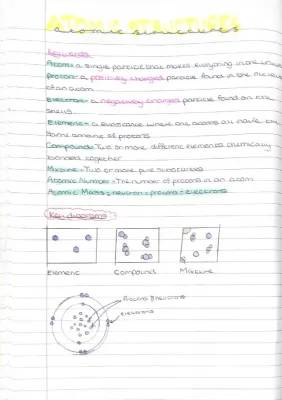 ATOMIC STRUCTURES
atomic structures
Key words
Atom: a single particle that makes everything in the
Proton: a positively charged particle found in the nucleus
of an atom
Electron: a negatively charged particle found on the
shells
Element = a substance where all atoms all have the
same amount of protons
Compound = Two or more different elements chemically
bonded together
Mixture = Two or more pure substances
Atomic Number = The number of protons in an atom
Atomic Mass = neutron + protons + electrons
Key diagrams
Element Compound Mixture
Protons/neutrons
electrons